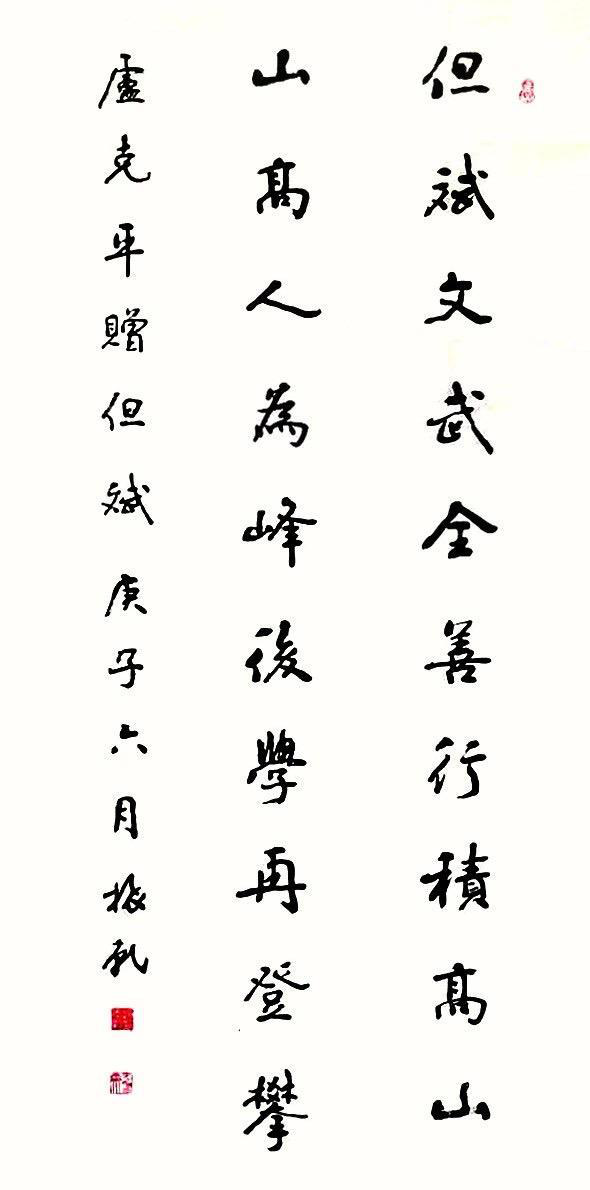 但斌文武全善行積高山
山高人為峰後學再登攀
盧克平贈但斌庚子六月振